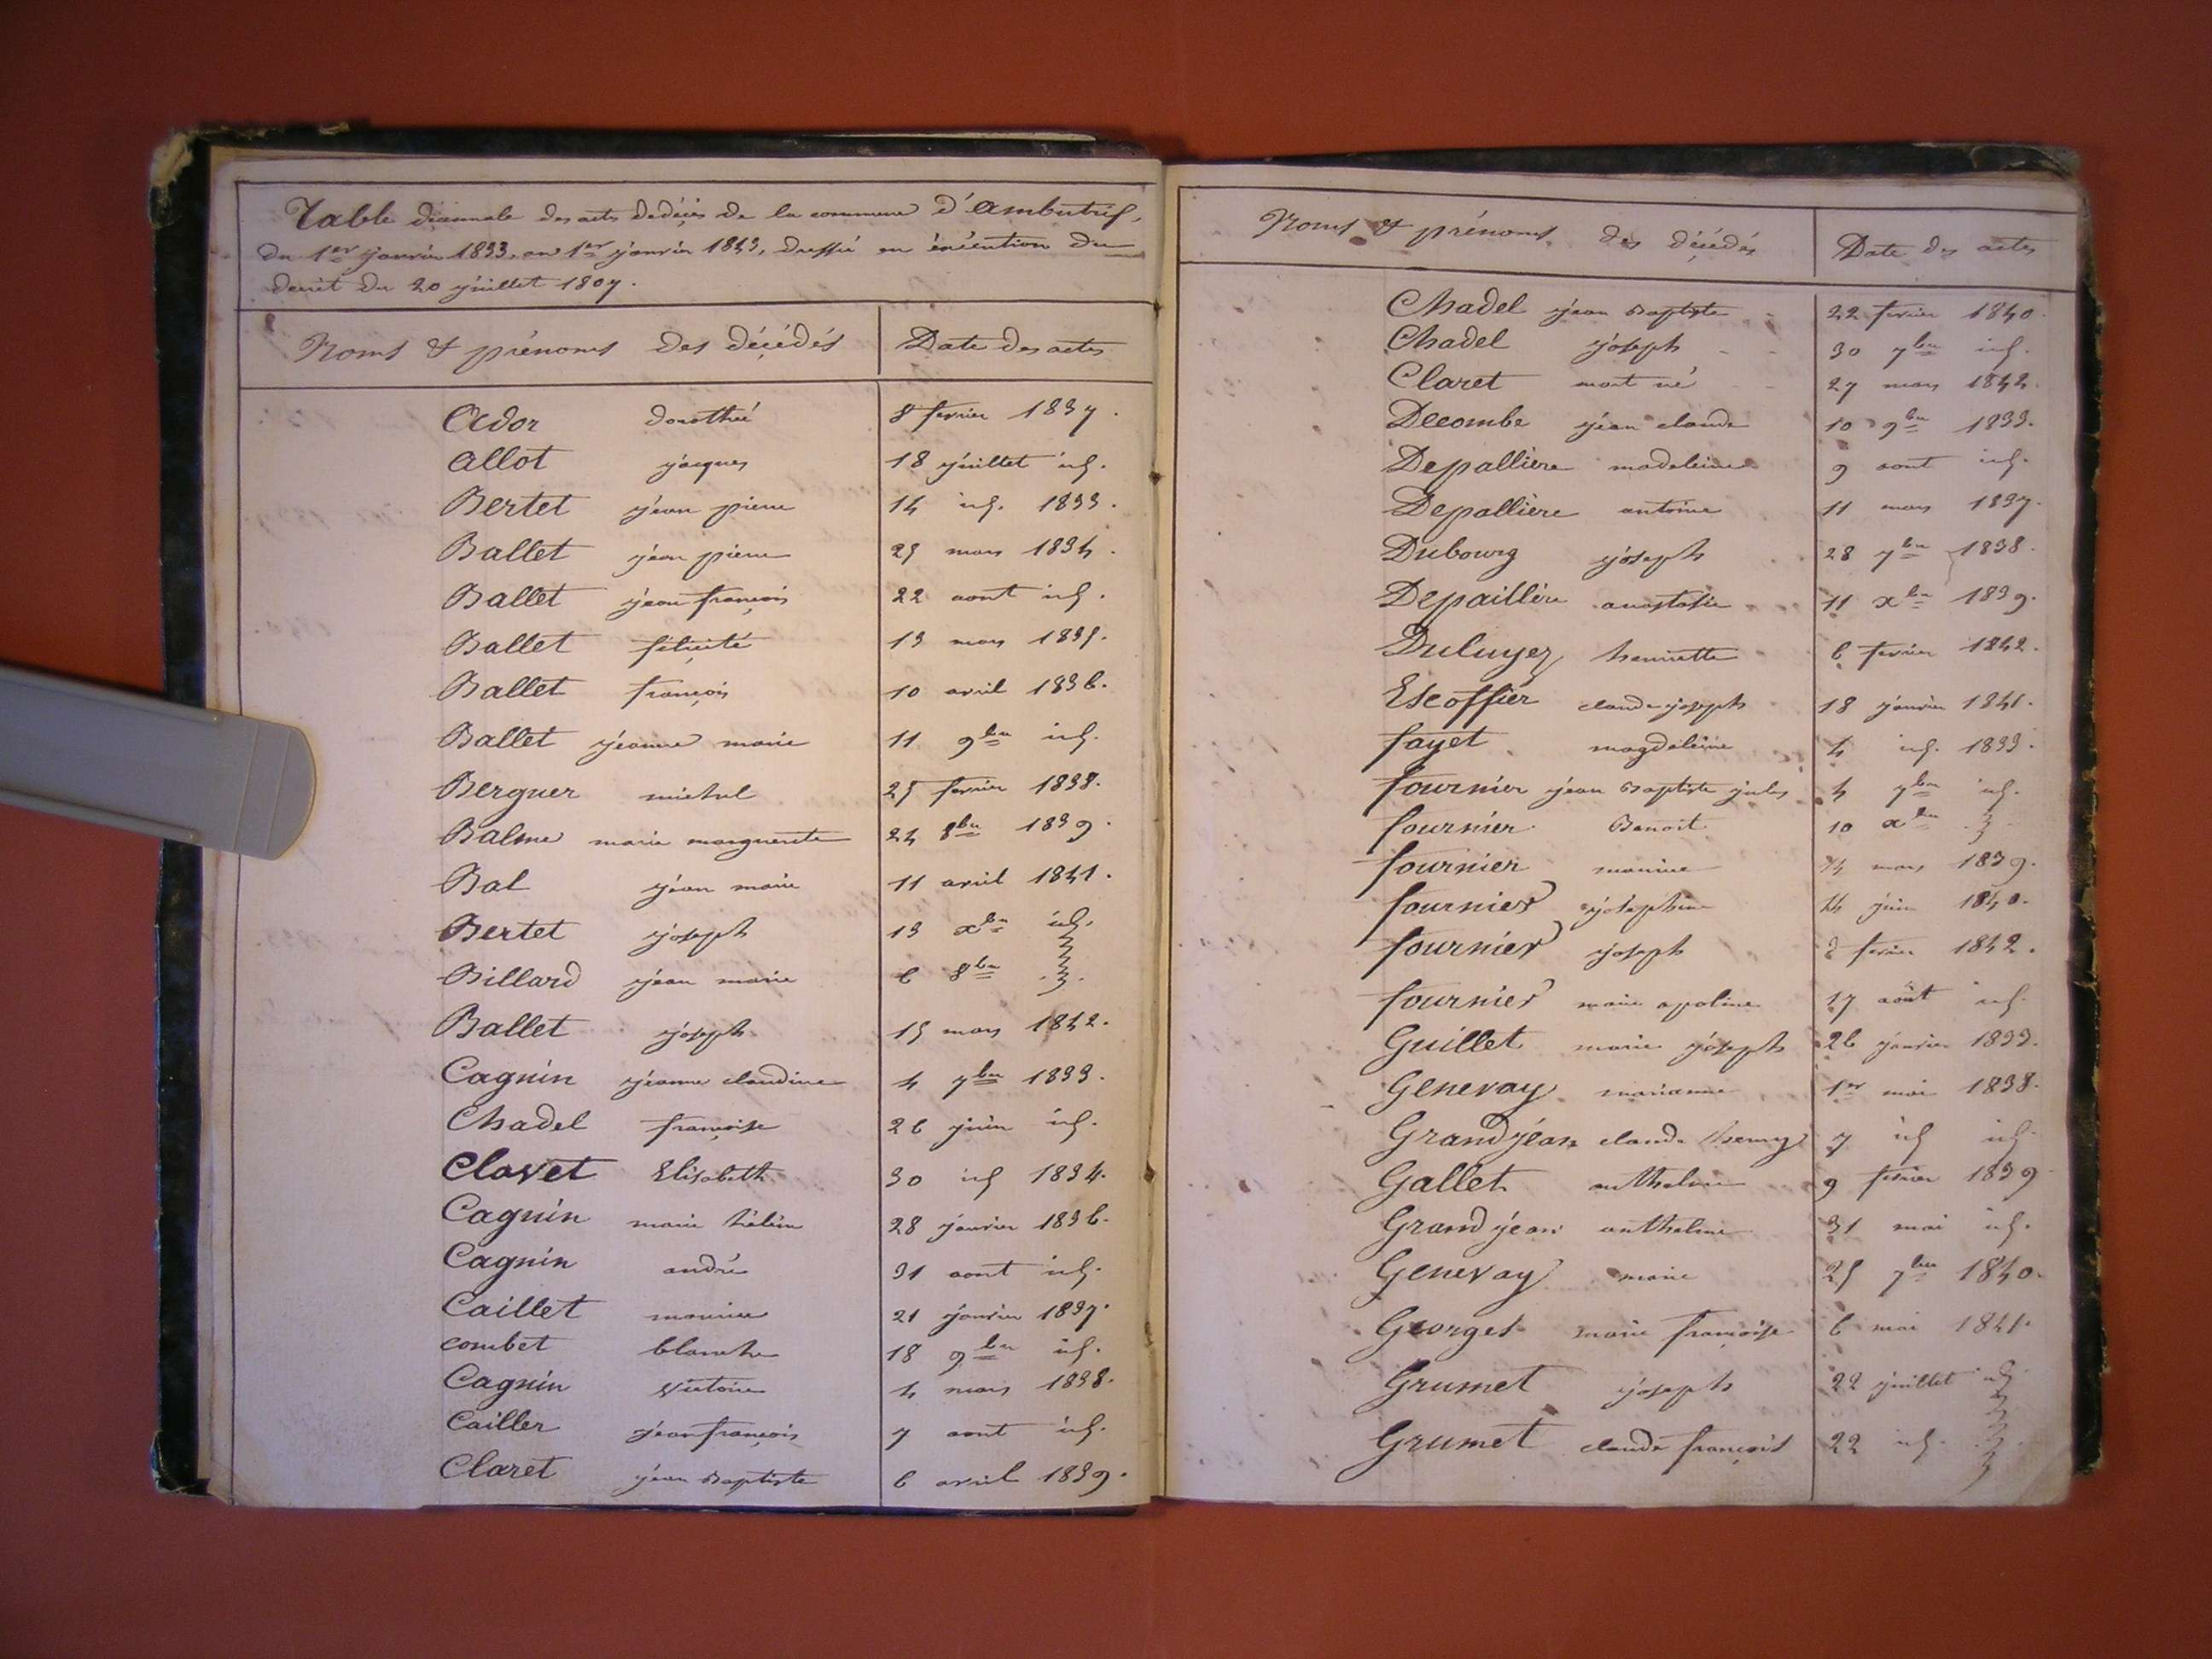 Table décennale des acts dedécès de la commune d'ambutrif,
du 1er janvier 1833, au 1er janvier 1843, dressée en éxécution du
decrèt du 20 juillet 1807.
Noms & prénoms des décédés Date des actes
Ador dorothée 8 fevrier 1837.
allot jacques 18 juillet id.
Bertet jean pierre 14 id. 1833.
Ballet jean pierre 25 mars 1834.
Ballet jean françois 22 aout id.
Ballet félicité 13 mars 1835.
Ballet françois 10 avril 1836.
Ballet jeanne marie 11 9bre id.
Berguer michel 25 fevrier 1838.
Balme marie marguerite 24 8bre 1839.
Bal jean marie 11 avril 1841.
Bertet joseph 13 xbre id.
Billard jean marie 6 8bre
Ballet joseph 15 mars 1842.
Cagnin jeanne claudine 4 7bre 1833.
Chadel françoise 26 juin id.
Clavet Elisabeth 30 id 1834.
Cagnin marie hélène 28 janvier 1836.
Cagnin andré 31 aout id.
Caillet maurice 21 janvier 1837.
combet blanche 18 9bre id.
Cagnin victoire 4 mars 1838.
Cailler jean françois 7 aout id.
Claret jean Baptiste 6 avril 1839.
Noms & prénoms des décédés Date des actes
Chadel jean Baptiste 22 fevrier 1840.
Chadel joseph 30 7bre id.
Claret mort né 27 mars 1842.
Decombe jean claude 10 9bre 1833.
Depallière madeleine 9 aout id.
Depallière antoine 11 mars 1837.
Dubourg joseph 28 7bre 1838.
Depaillère anastasie 11 xbre 1839.
Duluyez henriette 6 fevrier 1842.
Escoffier claude joseph 18 janvier 1841.
fayet magdeleine 4 id. 1833.
fournier jean Baptiste jules 4 7bre id.
fournier Benoit 10 xbre
fournier 14 mars 1839.
fournier joséphine 14 juin 1840.
fournier joseph 3 fevrier 1842.
fournier marie apoline 17 août id.
Guillet marie joseph 26 janvier 1833.
Genevay marianne 1er mai 1838.
Grandjéan claude henry 7 id id.
Gallet anthelme 9 fevrier 1839
Grandjéan anthelme 31 mai id.
Genevay marie 25 7bre 1840.
Georges marie françoise 6 mai 1841.
Grumet joseph 22 juillet id
Grumet claude françois 22 id.